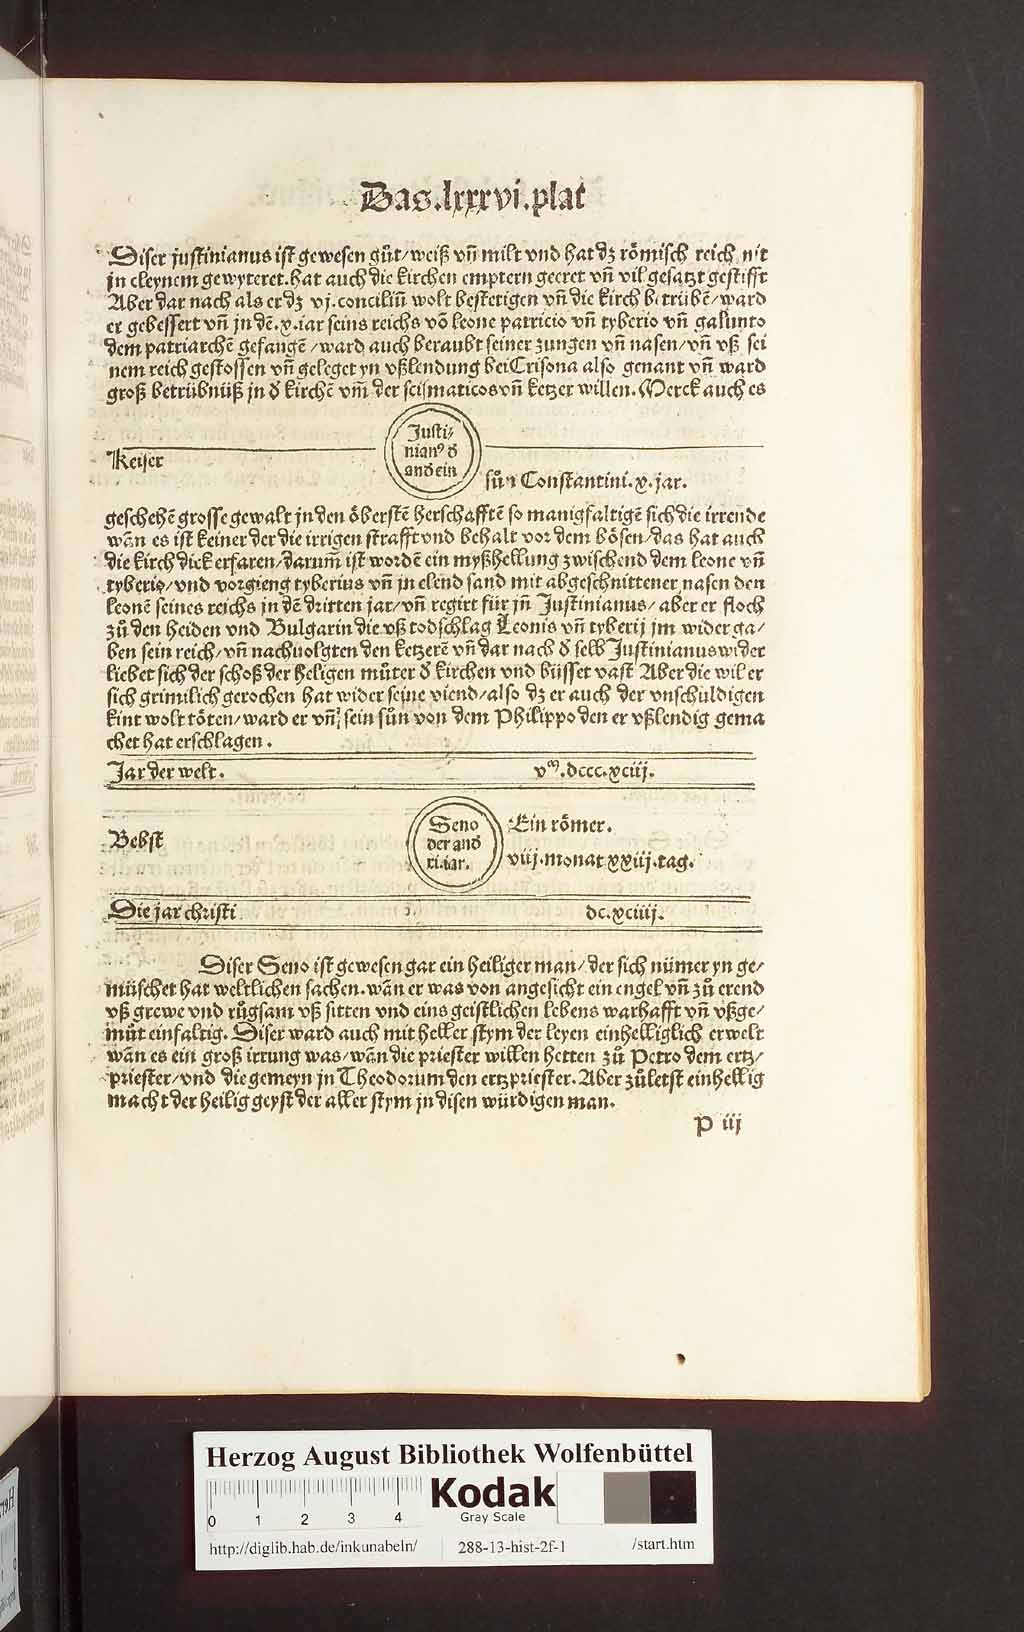 Das .lxxxvi. plat
Diser justinianus ist gewesen gůt/weiß vñ milt vnd hat dz rőmisch reich nit
jn cleynem gewyteret. hat auch die kirchen emptern geeret vñ vil gesatzt gestifft
Aber dar nach als er dz vj. conciliũ wolt bestetigen vñ die kirch betrübẽ/ward
er gebessert vñ jn dẽ .x. iar seins reichs võ leone patricio vñ tyberio vñ galunto
dem patriarchẽ gefangẽ/ward auch beraubt seiner zungen vñ nasen/vñ vß sei
nem reich gestossen vñ geleget yn vßlendung bei Crisona also genant vñ ward
groß betrübnüß jn d̕ kirchẽ vm̃ der scismaticos vñ ketzer willen. Merck auch es
Keiser
Justi⸗
nianꝰ d̕
and̕ ein
sůn Constantini .x. jar.
geschehẽ grosse gewalt jn den őberstẽ herschafftẽ so manigfaltigẽ sich die irrende
wãn es ist keiner der die irrigen strafft vnd behalt vor dem bősen/das hat auch
die kirch dick erfaren/darum̃ ist wordẽ ein myßhellung zwischend dem leone vñ
tyberio/vnd vorgieng tyberius vñ jn elend sand mit abgeschnittener nasen den
leonẽ seines reichs jn dẽ dritten jar/vñ regirt für jñ Justinianus/aber er floch
zů den heiden vnd Bulgarin die vß todschlag Leonis vñ tyberij jm wider ga/
ben sein reich/vñ nachuolgten den ketzerẽ vñ dar nach d̕ selb Justinianus wider
liebet sich der schoß der heligen můter d̕ kirchen vnd büsset vast Aber die wil er
sich grimilich gerochen hat wider seine viend/also dz er auch der vnschuldigen
kint wolt tőten/ward er vñ sein sůn von dem Philippo den er vßlendig gema
chet hat erschlagen.
Jar der welt.
vᵐ.dccc.xciij.
Bebst
Seno
der and̕
xi. iar.
Ein rőmer.
viij. monat xxiij. tag.
Die jar christi
dc.xciiij.
Diser Seno ist gewesen gar ein heiliger man/der sich nümer yn ge/
müschet hat weltlichen sachen. wãn er was von angesicht ein engel vñ zů erend
vß grewe vnd růgsam vß sitten vnd eins geistlichen lebens warhafft vñ vßge/
můt einfaltig. Diser ward auch mit heller stym der leyen einhelliglich erwelt
wãn es ein groß irrung was/wãn die priester willen hetten zů Petro dem ertz/
priester/vnd die gemeyn jn Theodorum den ertzpriester. Aber zůletst einhellig
macht der heilig geyst der aller stym jn disen würdigen man.
P iij
Herzog August Bibliothek Wolfenbüttel
0 1 2 3 4
Kodak
Gray Scale
http://diglib.hab.de/inkunabeln/
288-13-hist-2f-1
/start.htm